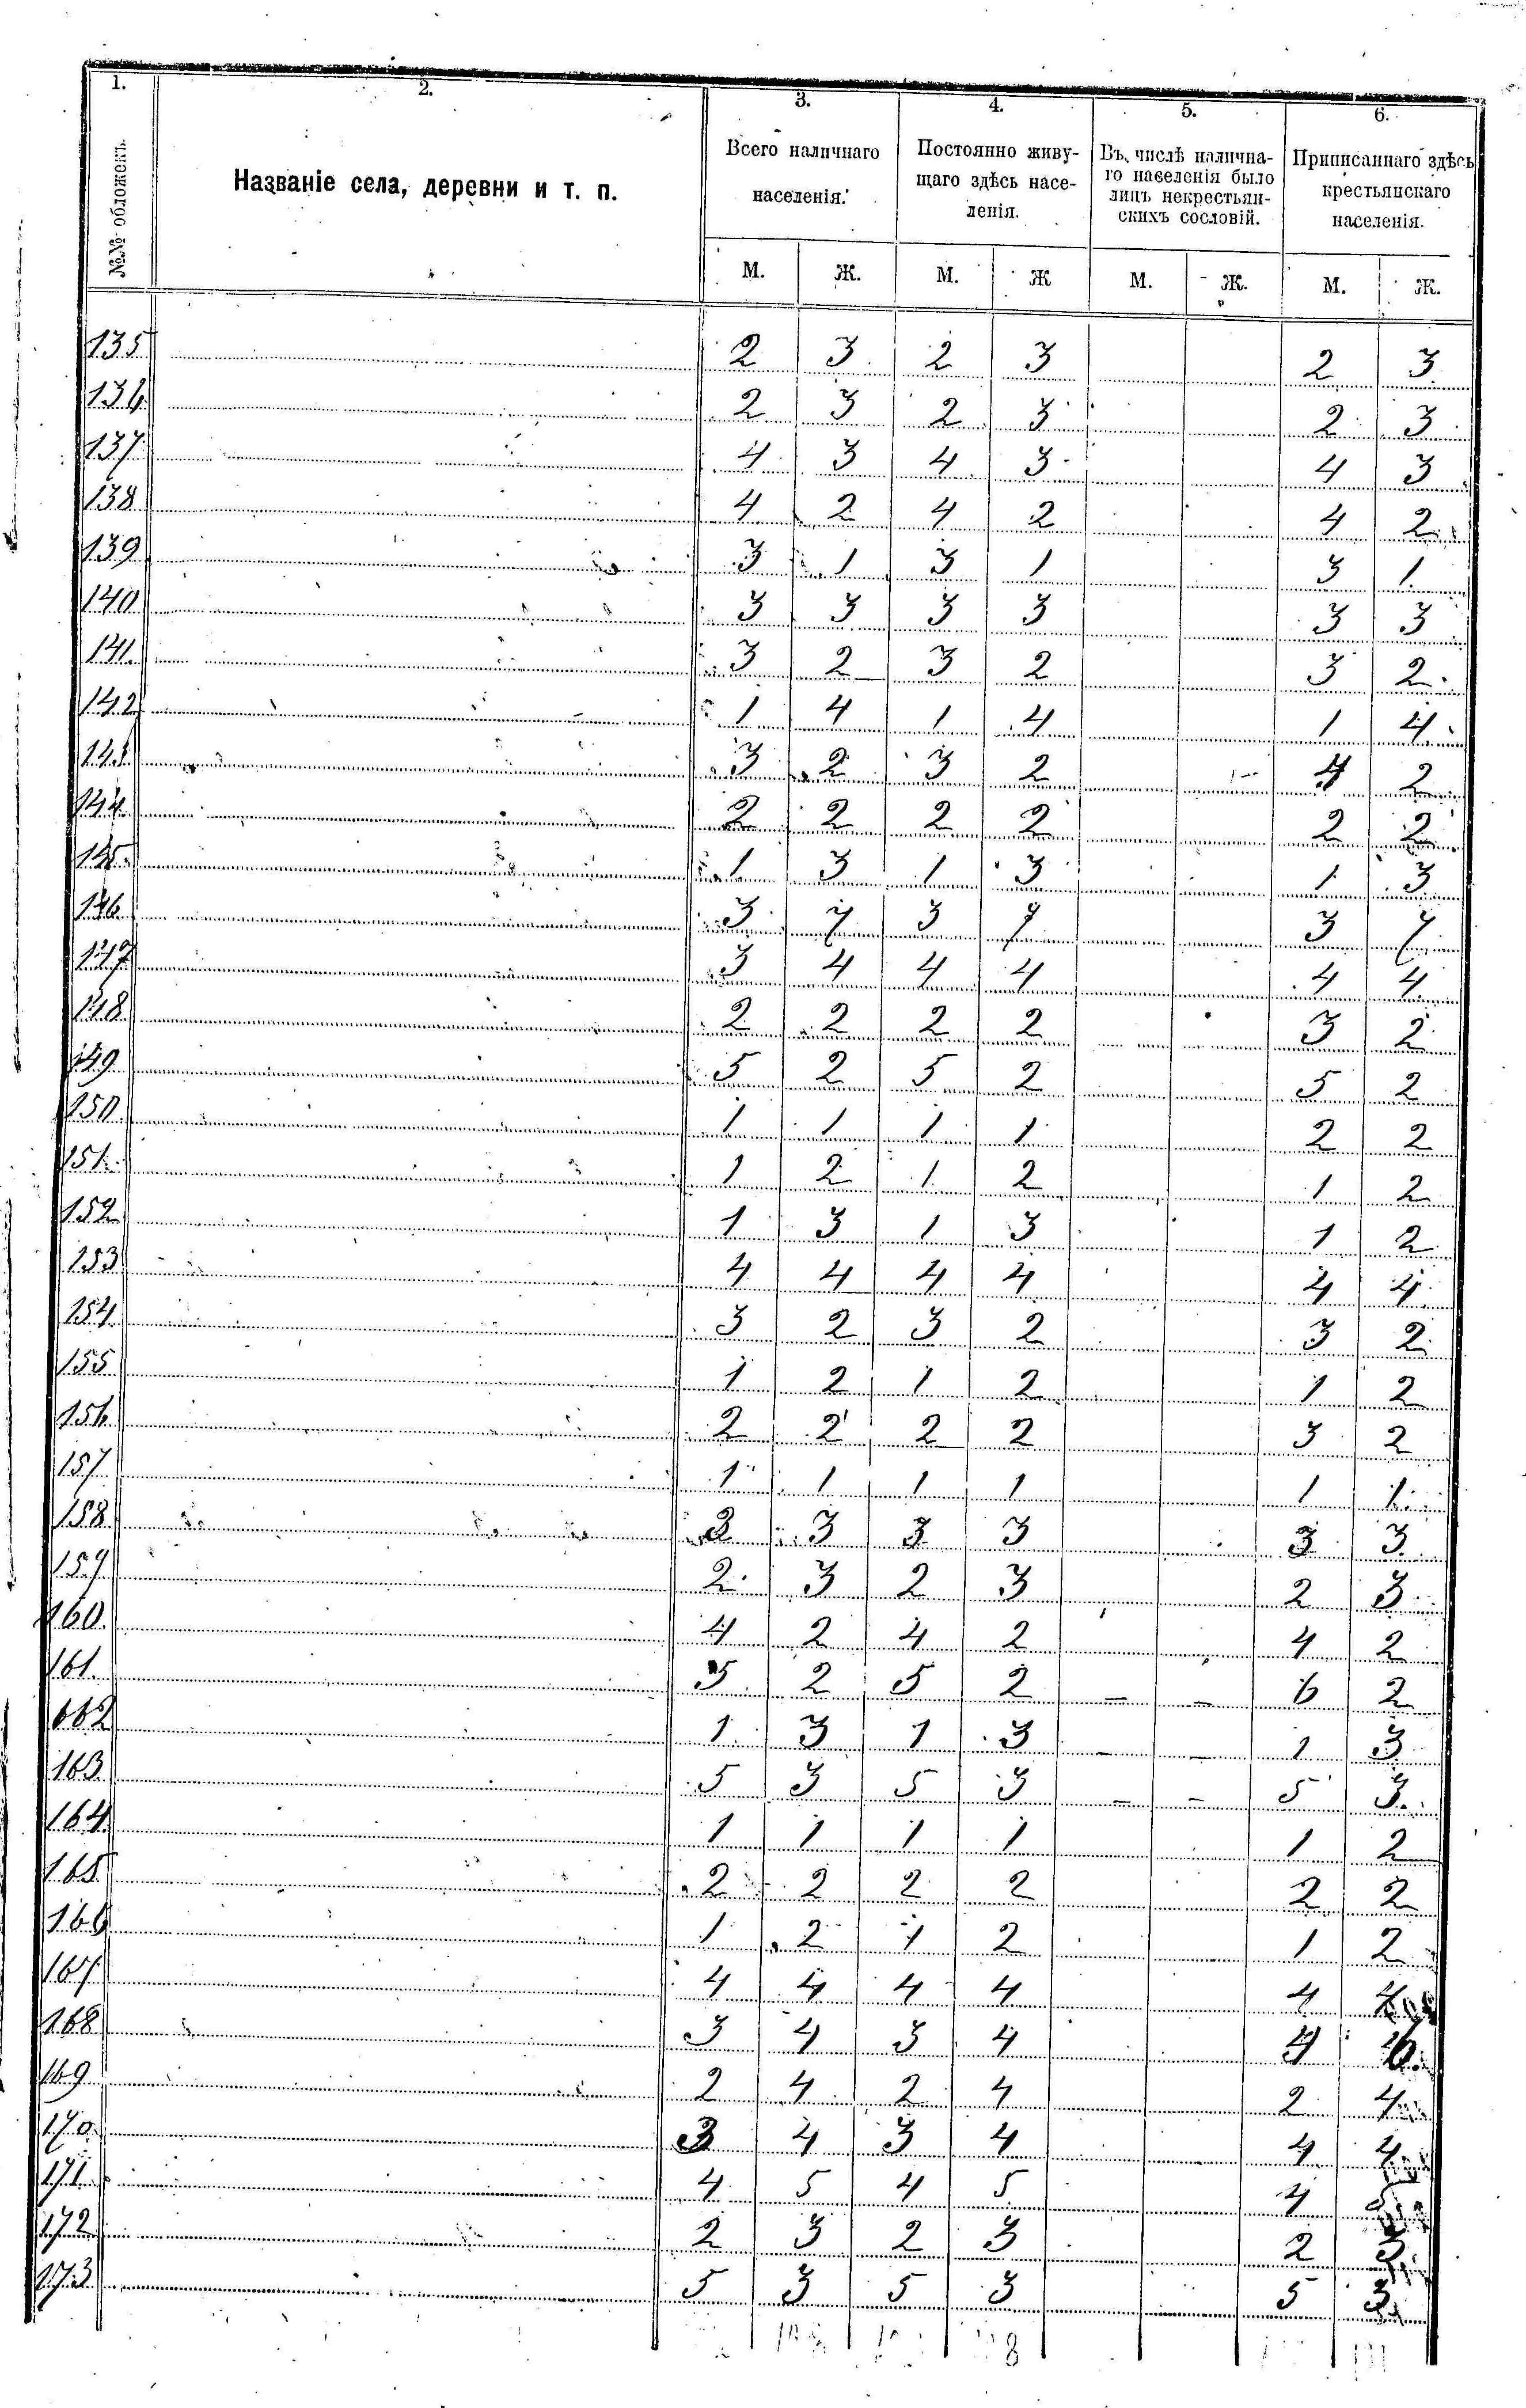 1. 2. 3. 4. 5. 6.
№№ обложекъ.
Названіе села, деревни и т. п.
Всего наличнаго населенія.
Постоянно живущаго здѣсь населенія.
Въ числѣ налична-го населенія было лицъ некрестьян-скихъ сословій.
Приписаннаго здѣсь крестьянскаго населенія.
М. Ж. М. Ж М. Ж. М. Ж.
135 2 3 2 3 2 3
136 2 3 2 3 2 3
137 4 3 4 3 4 3
138 4 2 4 2 4 2
139 3 1 3 1 3 1
140 3 3 3 3 3 3
141. 3 2 3 2 3 2
142 1 4 1 4 1 4
143 3 2 3 2 4 2
144 2 2 2 2 2 2
145 1 3 1 3 1 3
146 3 7 3 7 3 7
147 3 4 4 4 4 4
148 2 2 2 2 3 2
149 5 2 5 2 5 2
150 1 1 1 1 2 2
151. 1 2 1 2 1 2
152 1 3 1 3 1 2
153 4 4 4 4 4 4
154 3 2 3 2 3 2
155 1 2 1 2 1 2
156 2 2 2 2 3 2
157 1 1 1 1 1 1
158 3 3 3 3 3
159 2 3 2 3 2 3
160. 4 2 4 2 4 2
161. 5 2 5 2 – – 6 2
162 1 3 1 3 – – 1 3
163. 5 3 5 3 – – 5 3
164. 1 1 1 1 1 2
165 2 2 2 2 2 2
166 1 2 1 2 1 2
167 4 4 4 4 4 4
168 3 4 3 4 4
169 2 4 2 4 2 4
170. 3 4 3 4 4 4
171 4 5 4 5 4
172 2 3 2 3 2 3
173 5 3 5 3 5 3